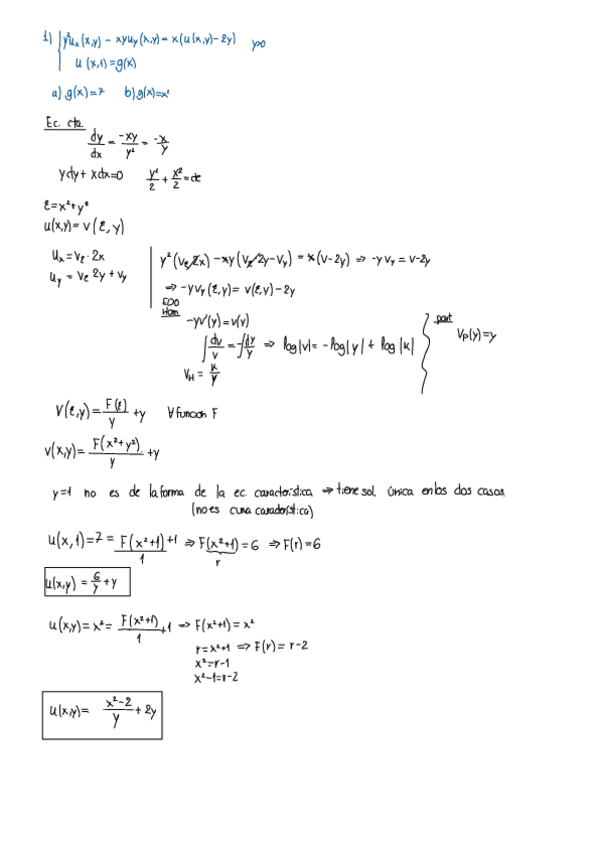 1) { y²uₓ(x,y) - xyu_y(x,y) = x(u(x,y)-2y)   y>0
u(x,1)=g(x)
a) g(x)=7   b) g(x)=x²
Ec. cta.
dy/dx = -xy/y² = -x/y
ydy + xdx=0   y²/2 + x²/2 = cte
ξ=x²+y²
u(x,y)= v(ξ,y)
uₓ = v_ξ · 2x
u_y = v_ξ 2y + v_y
y²(v_ξ 2x) - xy(v_ξ 2y - v_y) = x(v-2y) ⇒ -y v_y = v-2y
⇒ -y v_y(ξ,y) = v(ξ,y) - 2y
EDO
Hom
-yv'(y)=v(y)
∫ dv/v = -∫ dy/y ⇒ log|v| = -log|y| + log|k|
V_H = k/y
} part
V_p(y)=y
V(ξ,y) = F(ξ)/y + y   ∀ funcion F
v(x,y) = F(x²+y²)/y + y
y=1 no es de la forma de la ec. característica ⇒ tiene sol. única en los dos casos
(no es curva característica)
u(x,1)=7= F(x²+1)/1 +1 ⇒ F(x²+1) = 6 ⇒ F(r)=6
r
u(x,y) = 6/y + y
u(x,y)= x² = F(x²+1)/1 +1 ⇒ F(x²+1)= x²
r = x²+1 ⇒ F(r) = r-2
x²=r-1
x²-1=r-2
u(x,y)= (x²-2)/y + 2y